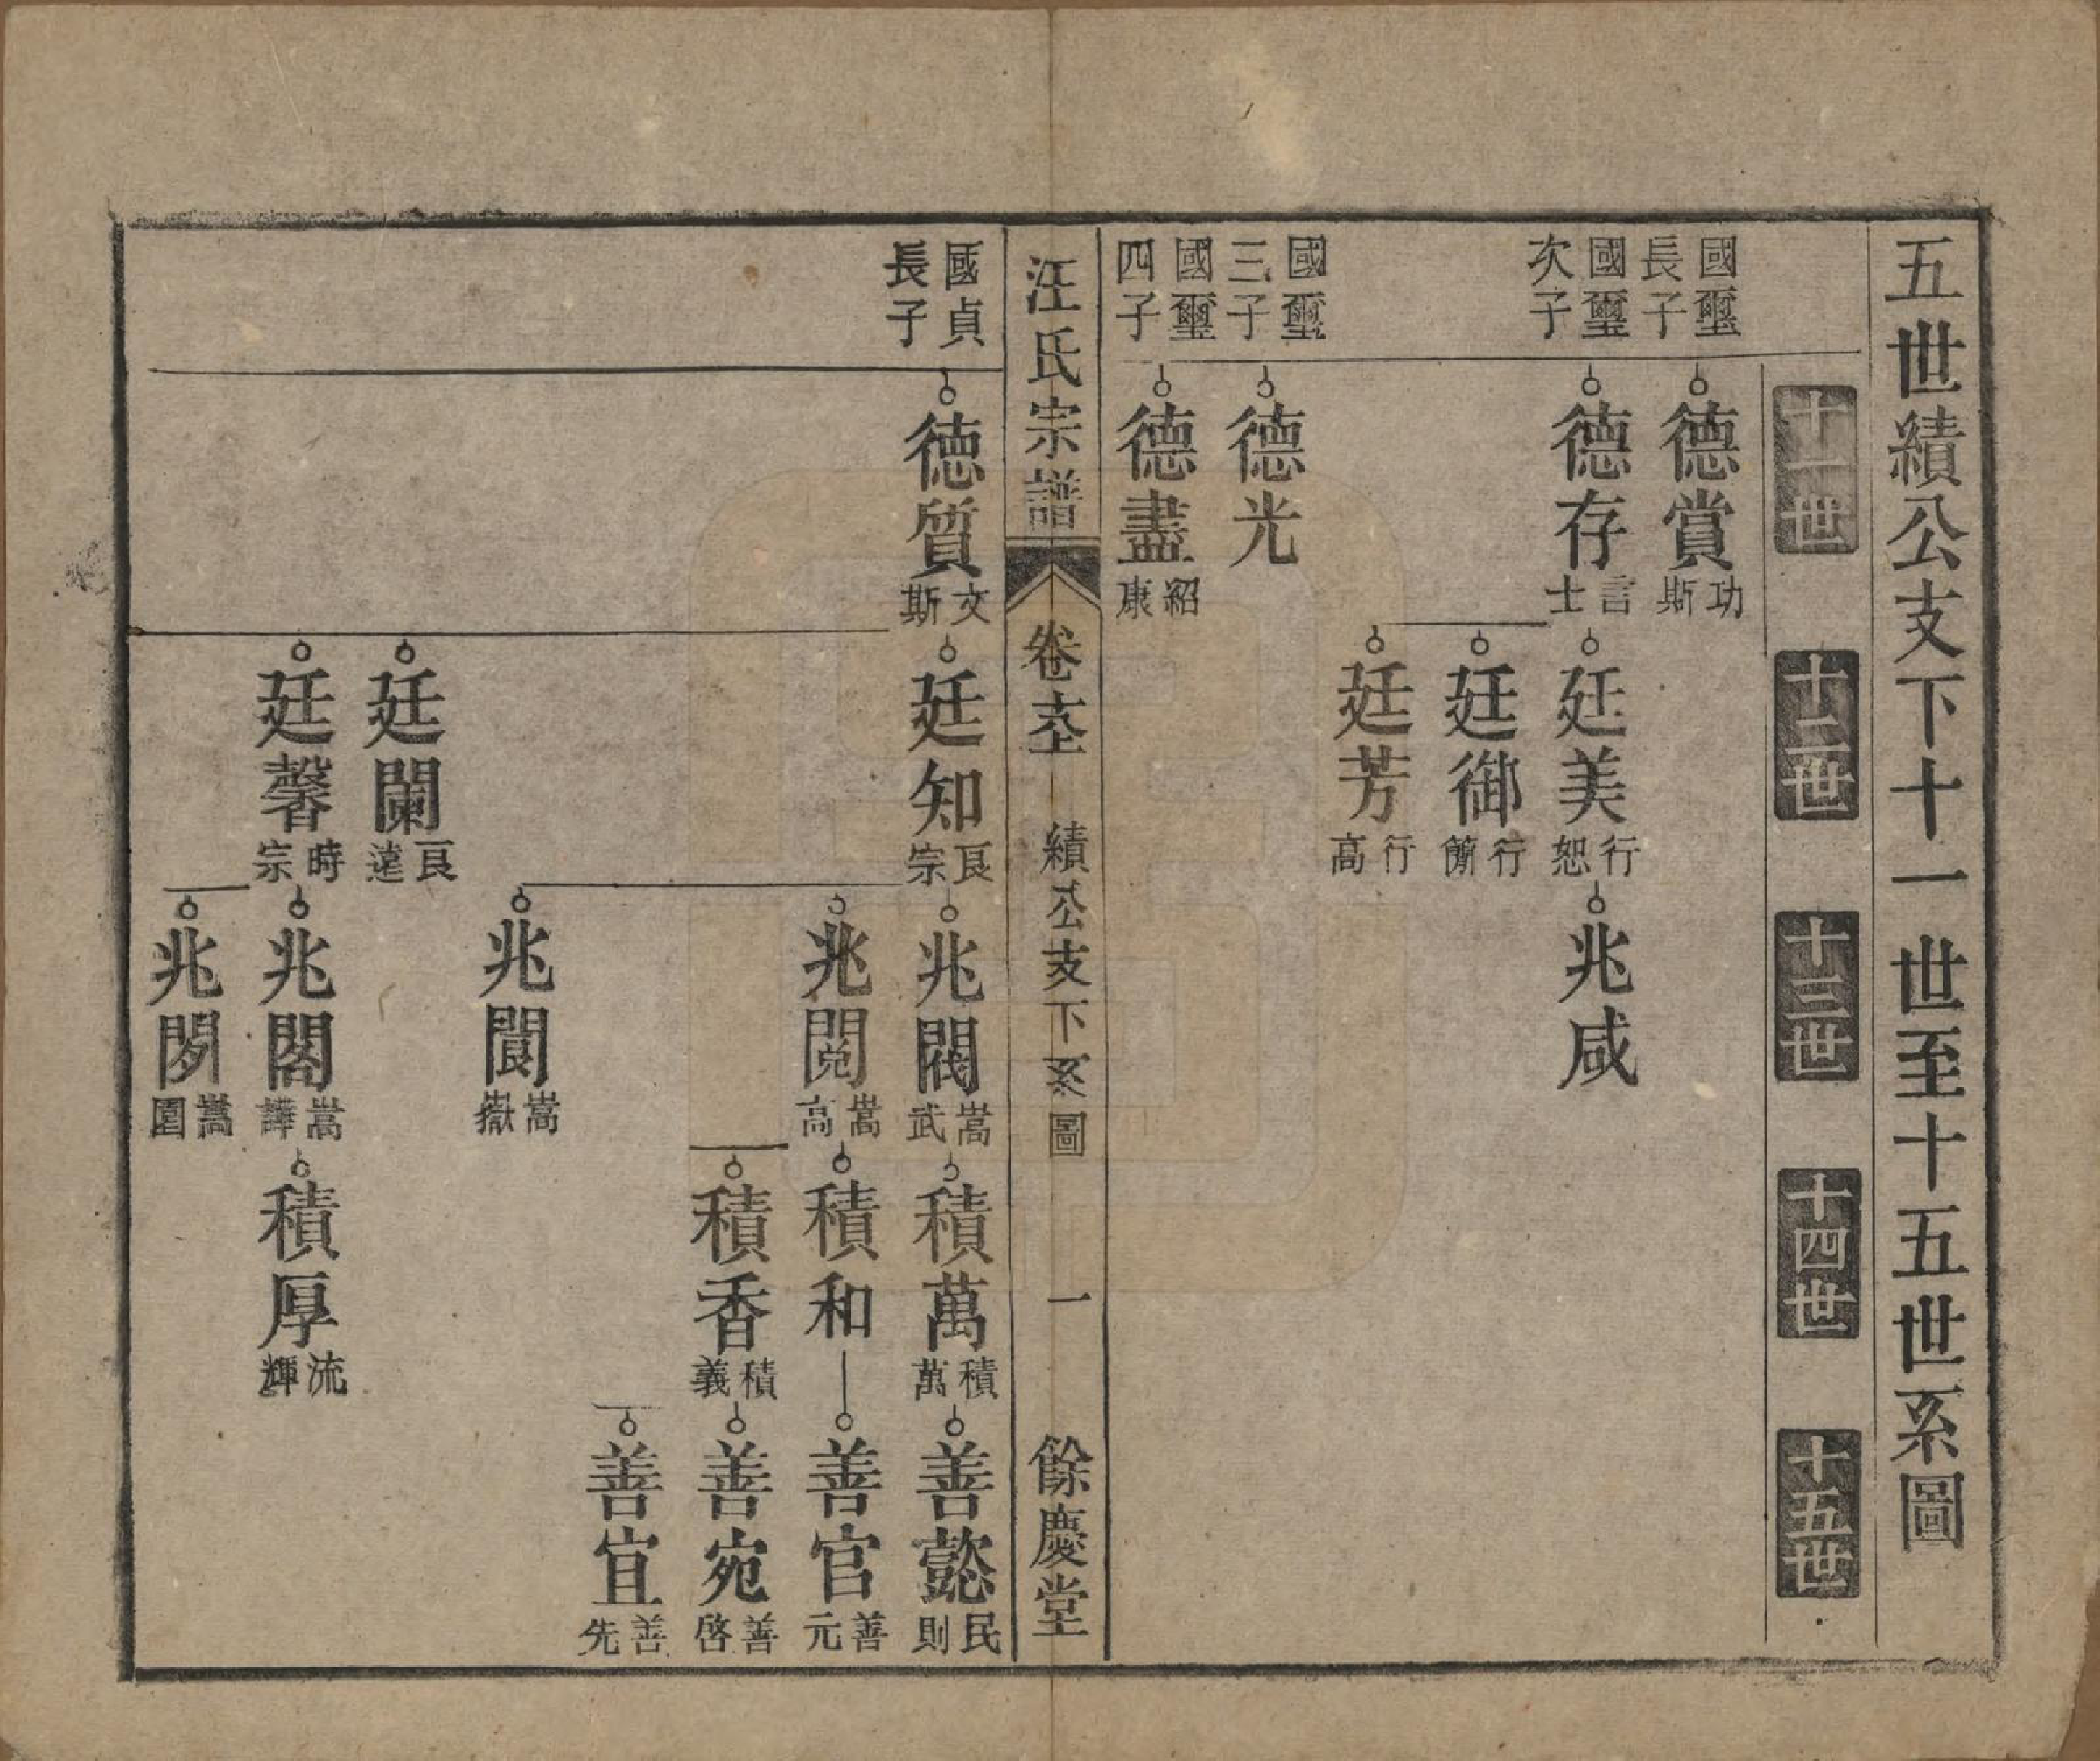 五世績公支下十一世至十五世系圖
十一世
十二世
十三世
十四世
十五世
國璽長子
德賞
功斯
國璽次子
德存
言士
廷美
行恕
兆咸
廷御
行簡
廷芳
行高
國璽三子
德光
國璽四子
德盡
紹康
汪氏宗譜
卷
績公支下系圖
一
餘慶堂
國貞長子
德質
文斯
廷知
良宗
兆閥
嵩武
積萬
積萬
善懿
民則
兆閱
嵩高
積和
善官
善元
積香
積義
善宛
善啓
善宜
善先
兆閬
嵩嶽
廷闌
良遠
廷馨
時宗
兆閣
嵩譁
積厚
流輝
兆
嵩圍